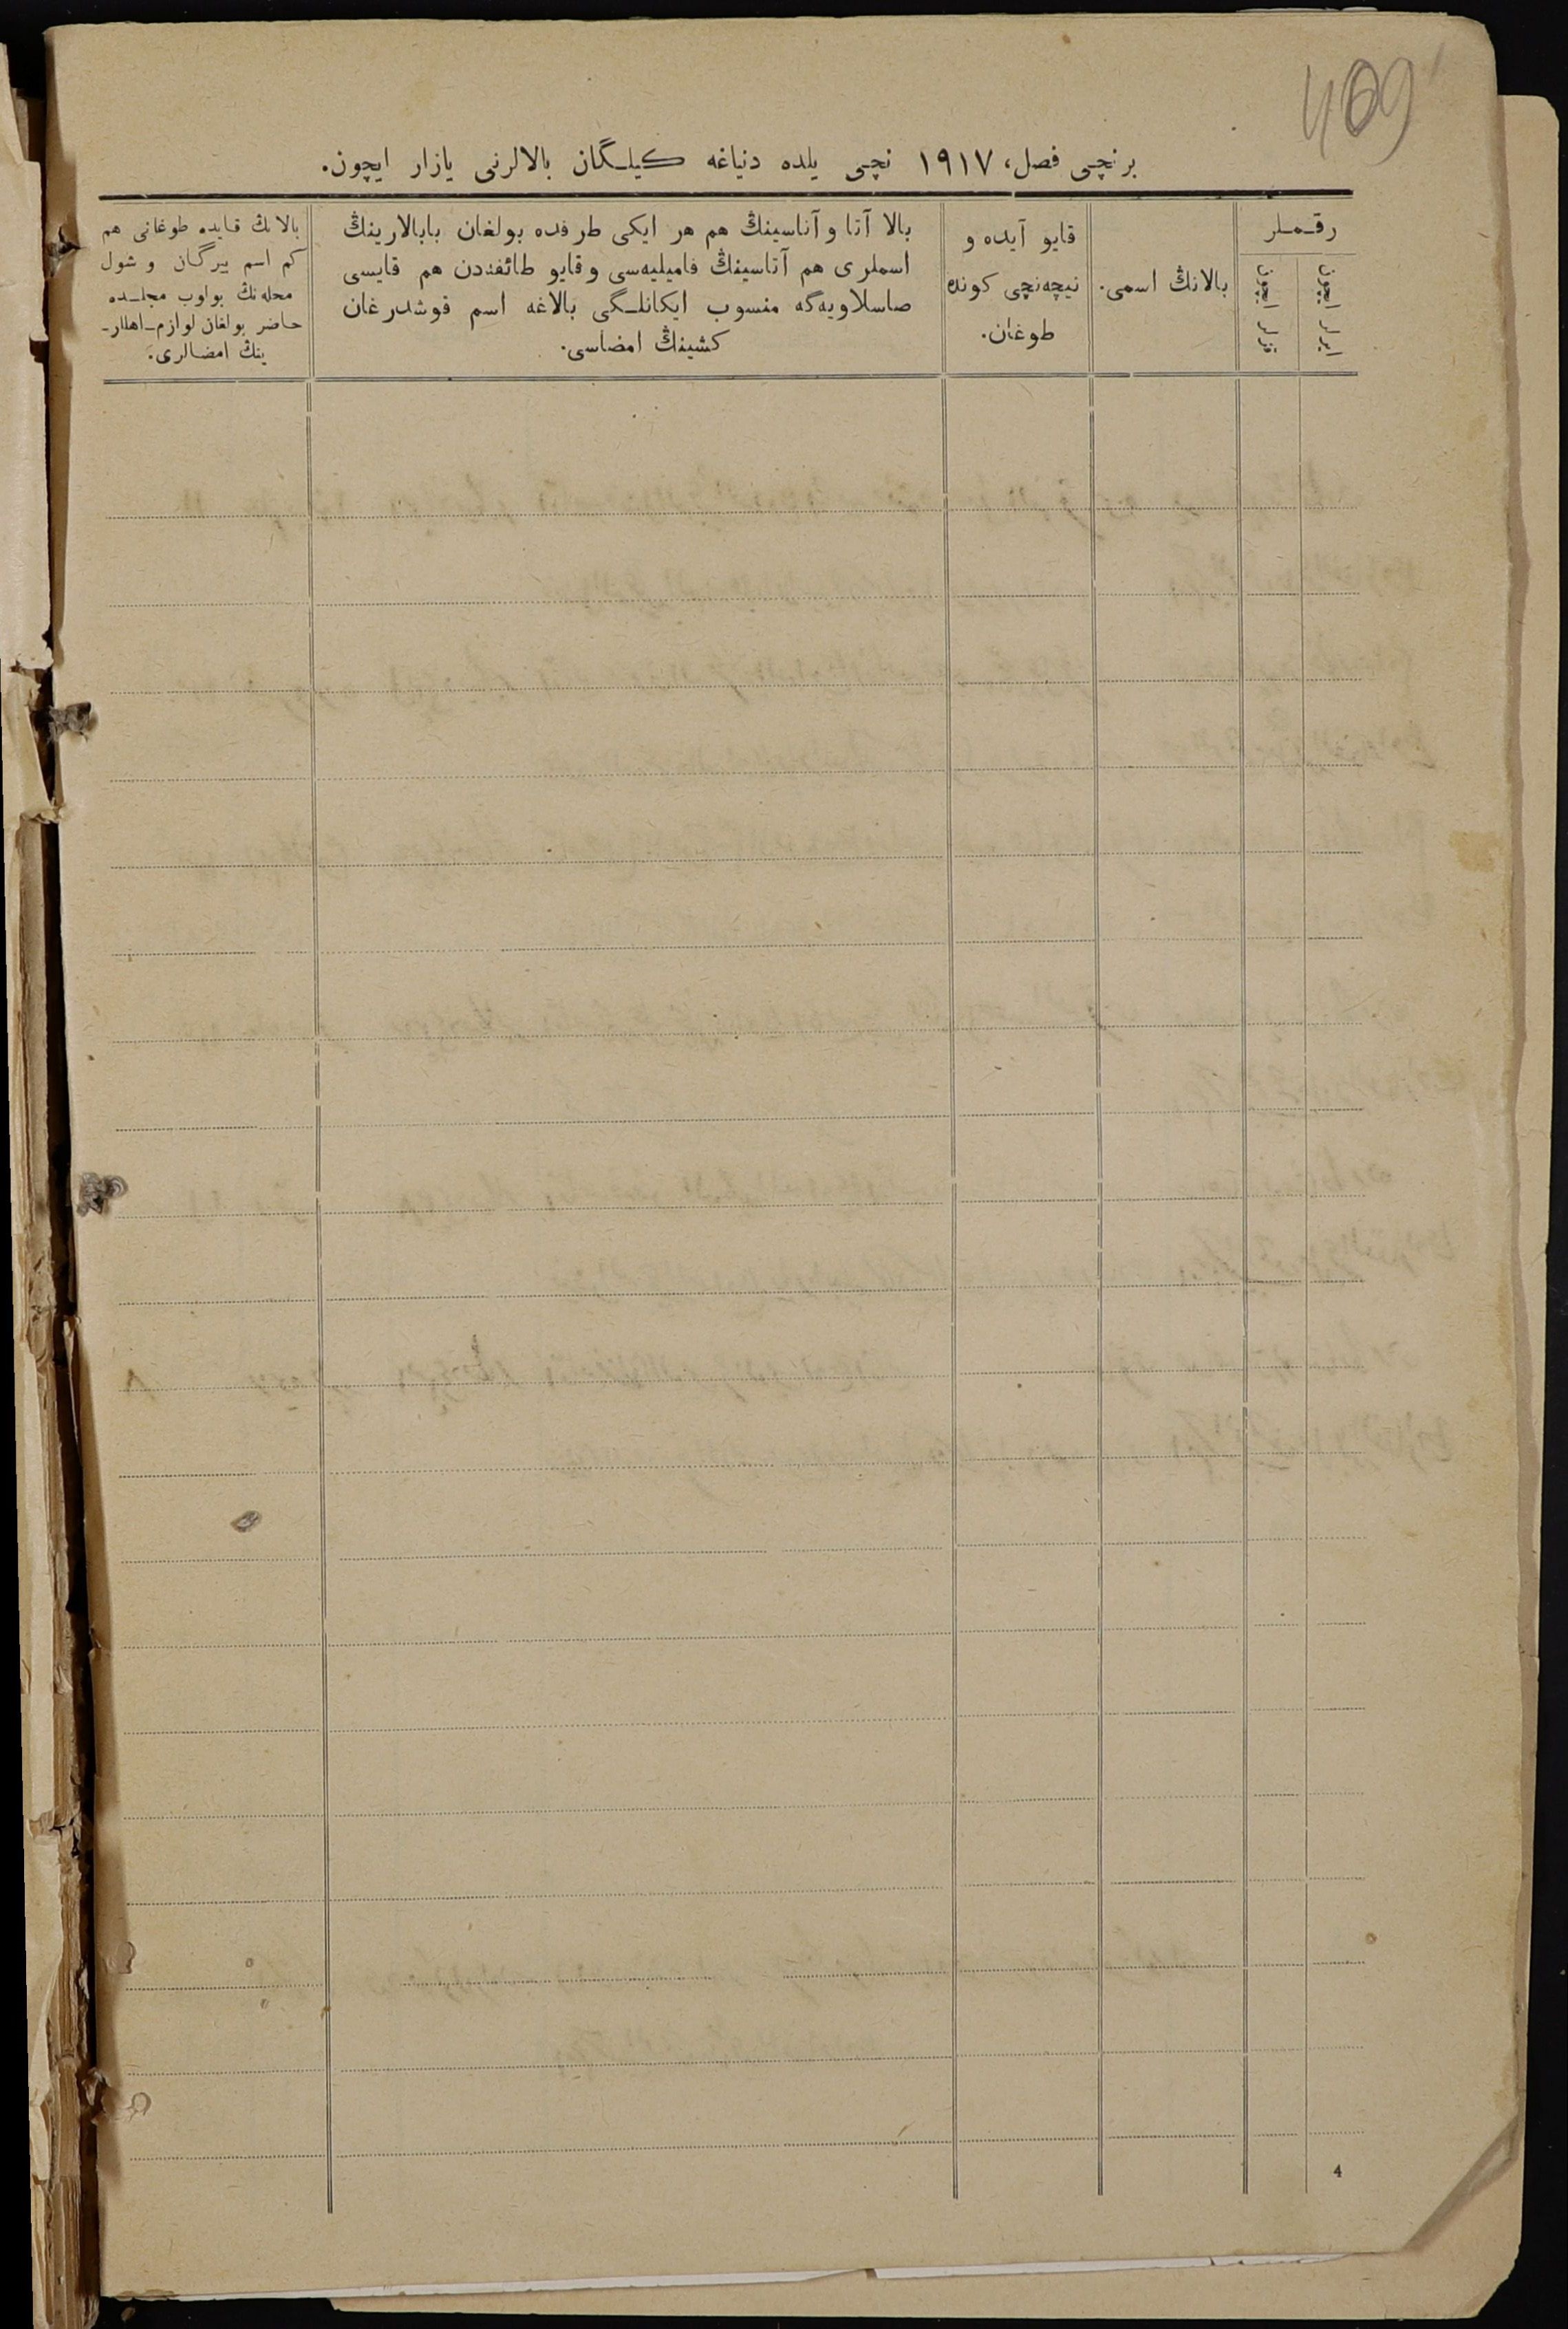 409
برنچی فصل، ١٩١٧ نچی یلده دنیاغه کیلگان بالالرنی یازار ایچون.
رقملر
ایرلر ایچون
قزلر ایچون
بالانڭ اسمی.
قایو آیده و
نیچه‌نچی کونده
طوغان.
بالا آتا و آناسینڭ هم هر ایکی طرفده بولغان بابالارینڭ
اسملری هم آتاسینڭ فامیلیه‌سی و قایو طائفه‌دن هم قایسی
صاسلاویه‌گه منسوب ایکانلگی بالاغه اسم قوشدرغان
کشینڭ امضاسی.
بالانڭ قایده طوغانی هم
کم اسم بیرگان و شول
محله‌نڭ بولوب مجلسده
حاضر بولغان لوازم اهللار-
ینڭ امضالری.
4